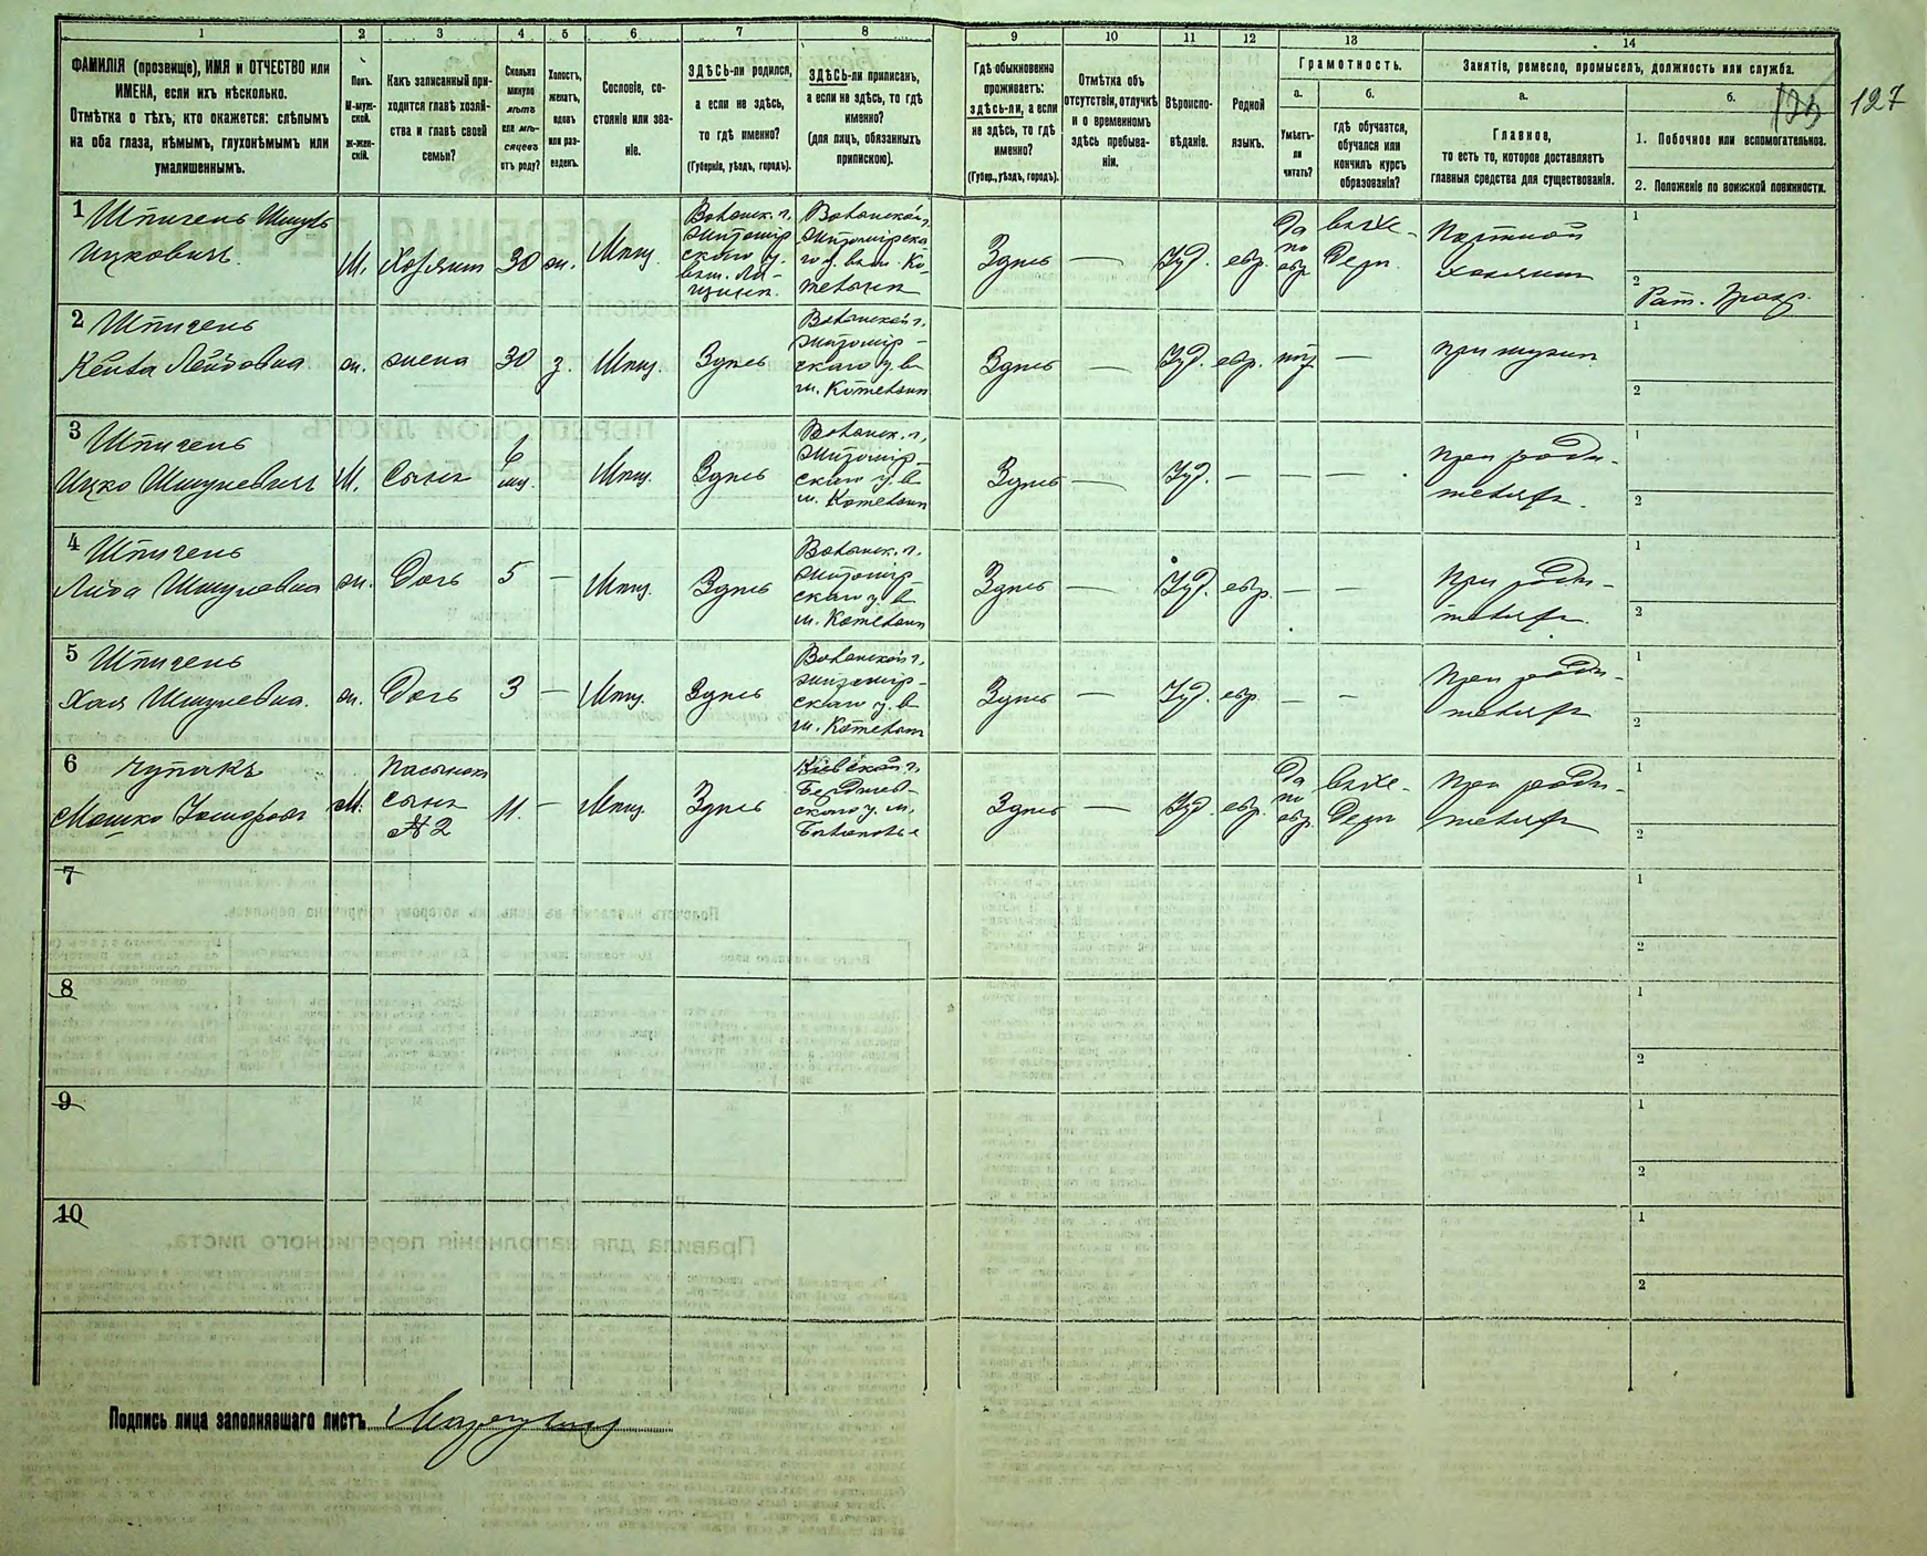 1 2 3 4 5 6 7 8 9 10 11 12 13 14
ФАМИЛІЯ (прозвище), ИМЯ и ОТЧЕСТВО или
ИМЕНА, если ихъ нѣсколько.
Отмѣтка о тѣхъ, кто окажется: слѣпымъ
на оба глаза, нѣмымъ, глухонѣмымъ или
умалишеннымъ.
Полъ.
М-муж-
ской.
Ж-жен-
скій.
Какъ записанный при-
ходится главѣ хозяй-
ства и главѣ своей
семьи?
Сколько
минуло
лѣтъ
или мѣ-
сяцевъ
отъ роду?
Холостъ,
женатъ,
вдовъ
или раз-
веденъ.
Сословіе, со-
стояніе или зва-
ніе.
ЗДѢСЬ-ли родился,
а если не здѣсь,
то гдѣ именно?
(Губернія, уѣздъ, городъ).
ЗДѢСЬ-ли приписанъ,
а если не здѣсь, то гдѣ
именно?
(для лицъ, обязанныхъ
припискою).
Гдѣ обыкновенно
проживаетъ:
здѣсь-ли, а если
не здѣсь, то гдѣ
именно?
(Губер., уѣздъ, городъ).
Отмѣтка объ
отсутствіи, отлучкѣ
и о временномъ
здѣсь пребыва-
ніи.
Вѣроиспо-
вѣданіе.
Родной
языкъ.
Грамотность.
а.
Умѣетъ-
ли
читать?
б.
гдѣ обучается,
обучался или
кончилъ курсъ
образованія?
Занятіе, ремесло, промыселъ, должность или служба.
а.
Главное,
то есть то, которое доставляетъ
главныя средства для существованія.
б.
1. Побочное или вспомогательное.
2. Положеніе по воинской повинности.
127
1 Шпигель Шмуль
Ицковичъ. М. Хозяинъ 30 ж. Мѣщ.
Волынск. г.
Житомір
скаго у.
Волынской г.
Житомірска
го у.
Здѣсь — Іуд. евр.
Да
по
евр.
Портной
хозяинъ
1
2
2 Шпигель
Лейбовна ж. жена 30 з. Мѣщ. Здѣсь
Волынской г.
Житомір-
скаго у. в
м. Котельнѣ
Здѣсь — Іуд. евр. нѣт —
при мужѣ
1
2
3 Шпигель
Ицко Шмулевичъ М. Сынъ 6 мѣс. Мѣщ. Здѣсь
Волынск. г.
Житомір-
скаго у. в
м. Котельнѣ
Здѣсь — Іуд. — — —
при роди-
теляхъ.
1
2
4 Шпигель
Шмулевна ж. Дочь 5 — Мѣщ. Здѣсь
Волынск. г.
Житомір-
скаго у. в
м. Котельнѣ
Здѣсь — Іуд. евр. — —
при роди-
теляхъ.
1
2
5 Шпигель
Хая Шмулевна. ж. Дочь 3 — Мѣщ. Здѣсь
Волынской г.
Житомір-
скаго у. в
м. Котельнѣ
Здѣсь — Іуд. евр. — —
при роди-
теляхъ
1
2
6 Чупакъ
Мошко М.
Пасынокъ
сынъ
№ 2
11. — Мѣщ. Здѣсь
Кіевской г.
Бердичев-
скаго у. м.
Здѣсь — Іуд. евр.
Да
по
евр.
при роди-
теляхъ
1
2
7
1
2
8
1
2
9
1
2
10
1
2
Подпись лица заполнявшаго листъ